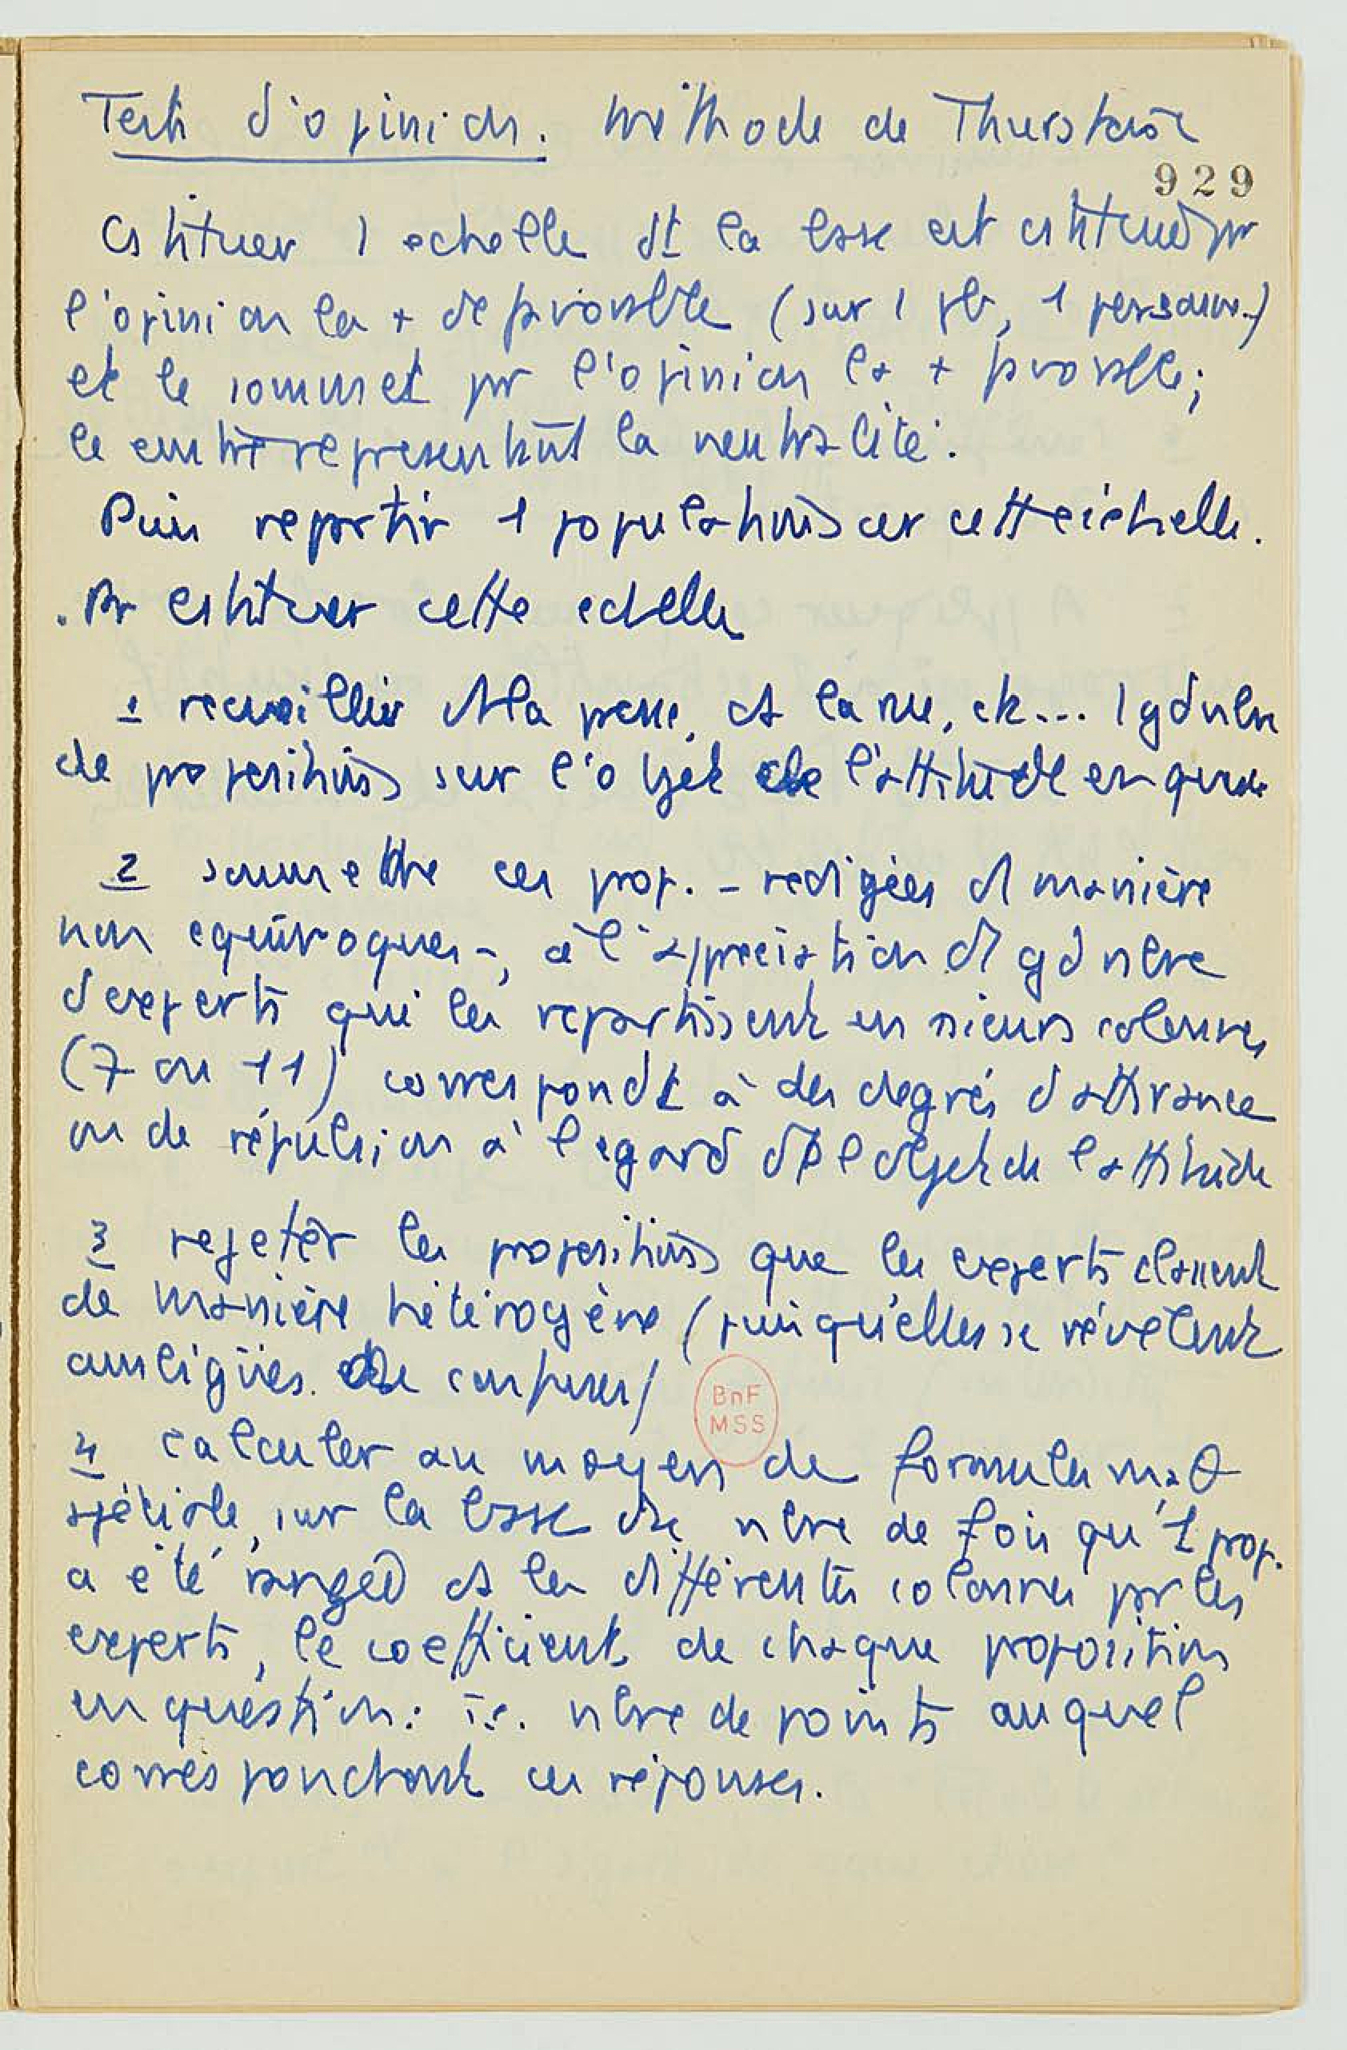 Tests d'opinion. Méthode de Thurstone
929
Cstituer 1 echelle dt la base est cstituée pr
l'opinion la + defavorable (sur 1 pb, 1 personne.)
et le sommet pr l'opinion la + favorable;
le centre representant la neutralité.
Puis repartir 1 population sur cette échelle.
. Pr cstituer cette echelle
1 recueillir ds la presse, ds la rue, etc... 1 gd nbre
de propositions sur l'objet de l'attitude en question
2 soumettre ces prop. - redigées d manière
non equivoques -, à l'appreciation d'1 gd nbre
d'experts qui les repartissent en sieurs colonnes
(7 ou 11) correspondt à des degrés d'attirance
ou de répulsion à l'egard de l'objet de l'attitude
3 rejeter les propositions que les experts classent
de manière hétérogène (puisqu'elles se révèlent
ambigües. de confuses)
4 calculer au moyen de formules mathθ
spéciale, sur la base du nbre de fois qu'1 prop.
a été rangée ds les différentes colonnes par les
experts, le coefficient de chaque proposition
en question: i.e. nbre de points auquel
correspondront ces réponses.
BnF
MSS